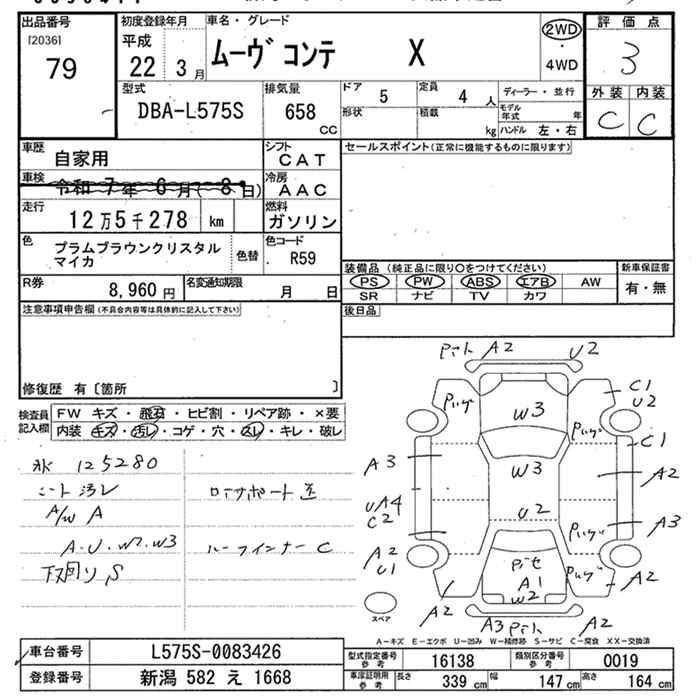 出品番号
[2036]
79
初度登録年月
平成
22 3月
車名・グレード
ムーヴ コンテ X
2WD
・
4WD
評価点
3
外装 内装
C C
型式
DBA-L575S
排気量
658
CC
ドア 5
定員 4 人
ディーラー・並行
形状
積載
kg
モデル年式 年
ハンドル 左・右
車歴
自家用
シフト
CAT
車検
令和 7年 6月( 8日)
冷房
AAC
走行
12万5千278 km
燃料
ガソリン
色
プラムブラウンクリスタル
マイカ
色替
色コード
R59
R券
8,960 円
名変通知期限
月 日
セールスポイント(正常に機能するものに限ります)
装備品 (純正品に限り○をつけてください)
PS PW ABS エアB AW
SR ナビ TV カワ
新車保証書
有・無
後日品
注意事項申告欄(不具合内容等は具体的に記入して下さい)
修復歴 有〔箇所 〕
検査員
記入欄
FW キズ・飛石・ヒビ割・リペア跡・×要
内装 キズ・汚レ・コゲ・穴・スレ・キレ・破レ
125280
シート汚レ
A/W A
A・U・W2・W3
下回りS
ルーフインナー C
A2
U2
C1
U2
W3
C1
A3
W3
A2
UA4
C2
U2
A3
A2
U1
A1
W2
A2
A2
A3
A2
スペア
A-キズ E-エクボ U-凹み W-補修跡 S-サビ C-腐食 XX-交換済
車台番号
L575S-0083426
登録番号
新潟 582 え 1668
型式指定番号
参考
16138
類別区分番号
参考
0019
車庫証明用
参考
長さ 339 cm
幅 147 cm
高さ 164 cm